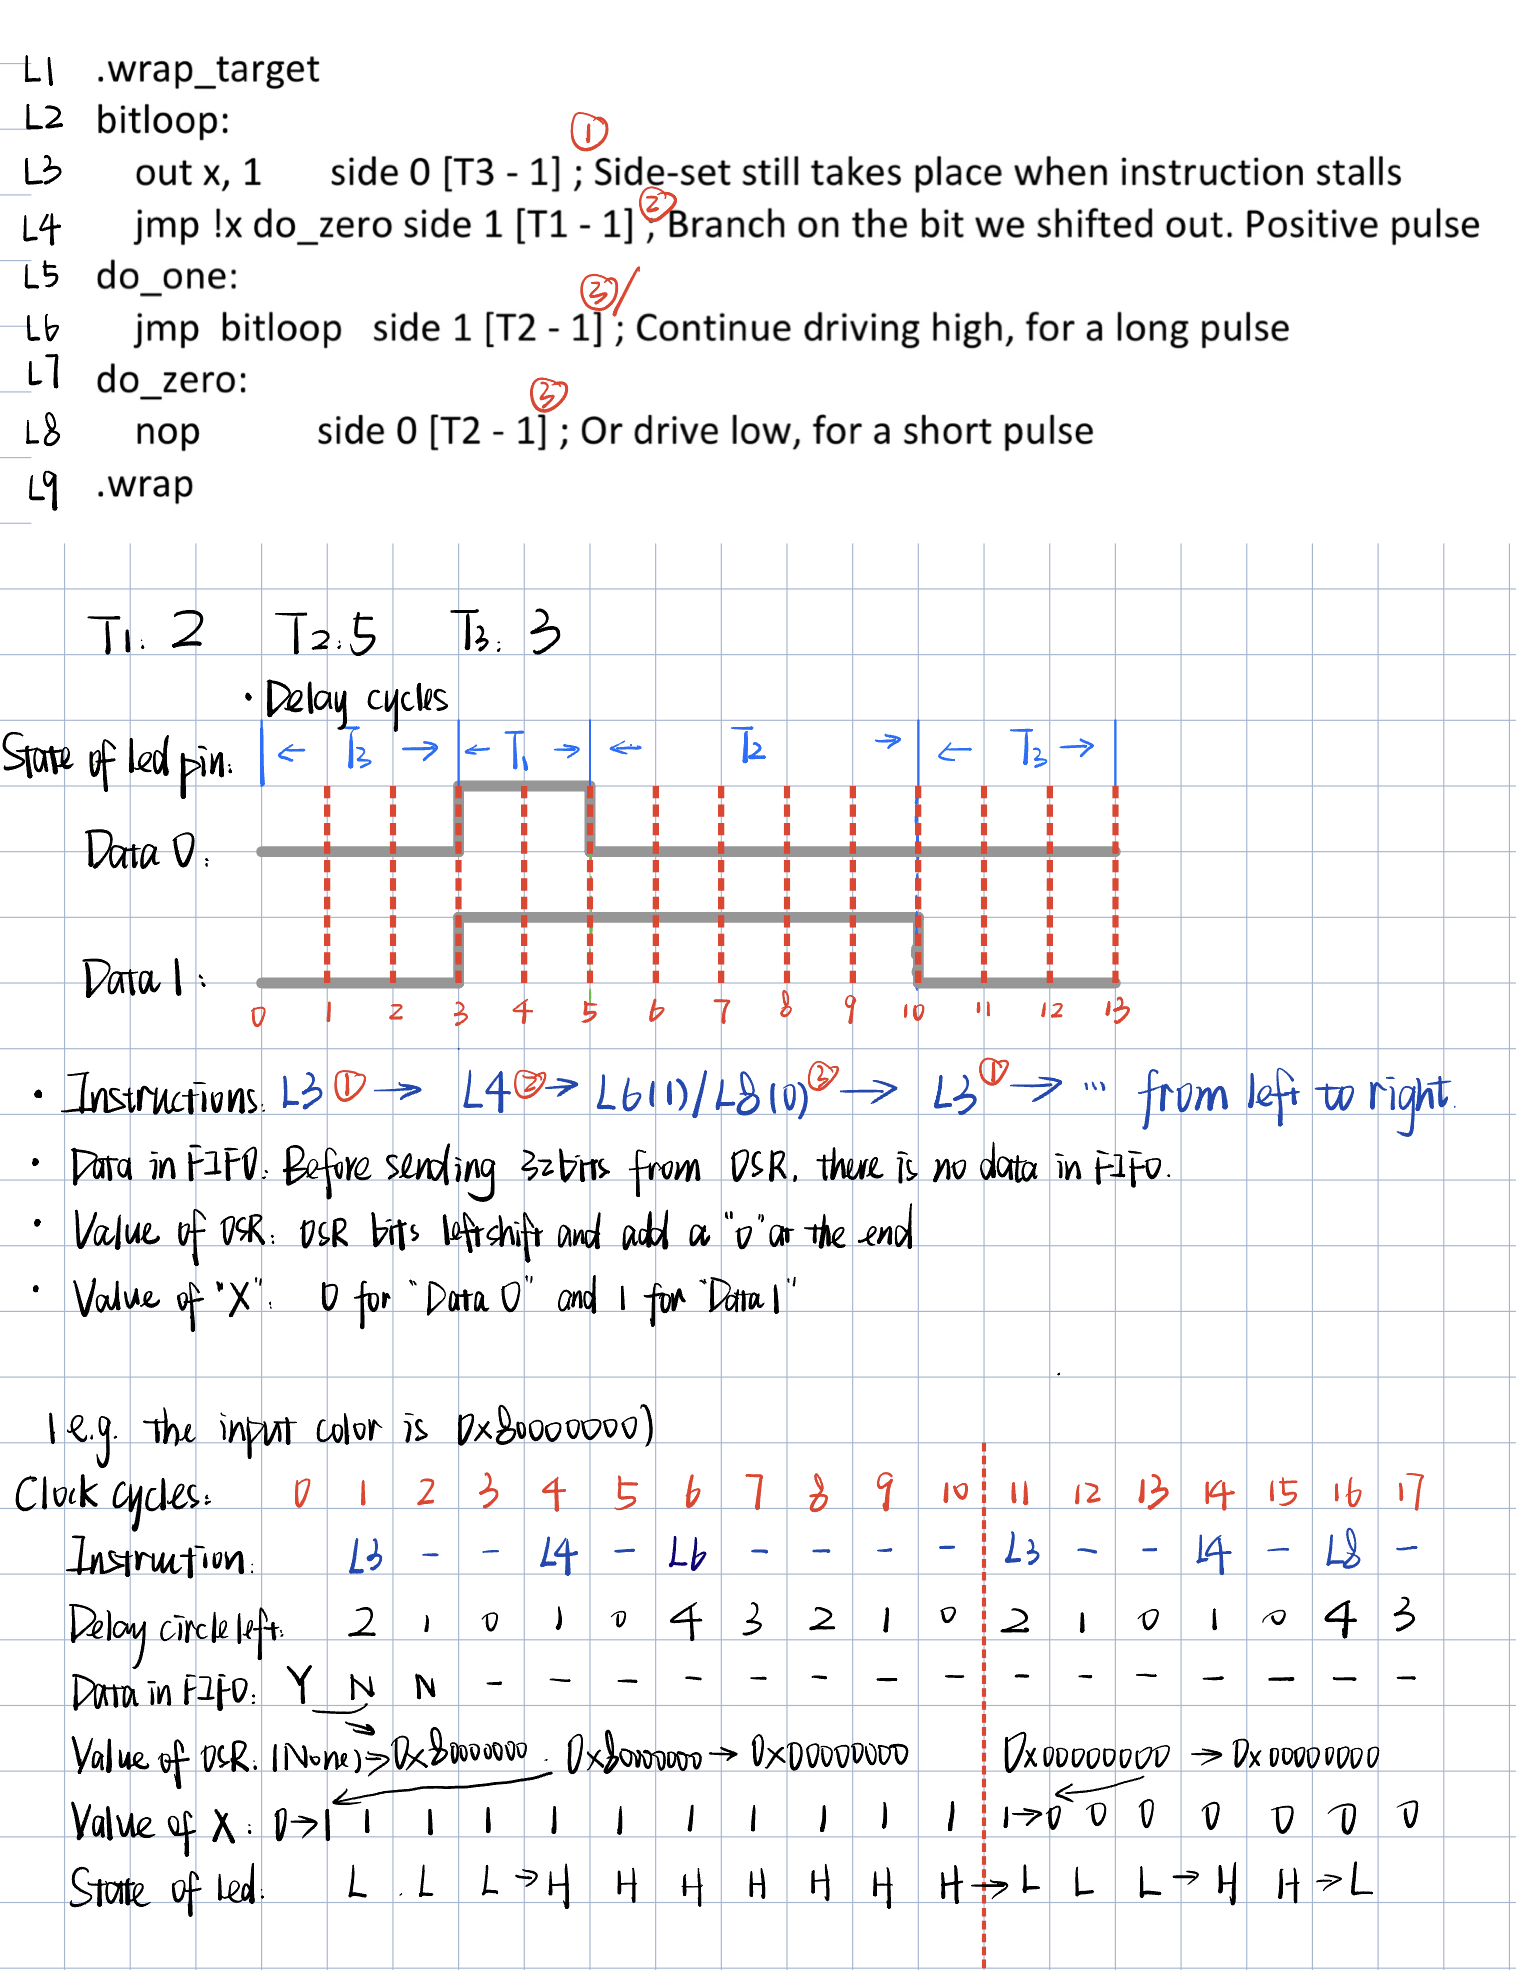 L1 .wrap_target
L2 bitloop:
①
L3 out x, 1 side 0 [T3 - 1] ; Side-set still takes place when instruction stalls
②
L4 jmp !x do_zero side 1 [T1 - 1] ; Branch on the bit we shifted out. Positive pulse
L5 do_one:
③/
L6 jmp bitloop side 1 [T2 - 1] ; Continue driving high, for a long pulse
L7 do_zero:
③
L8 nop side 0 [T2 - 1] ; Or drive low, for a short pulse
L9 .wrap
T1: 2 T2: 5 T3: 3
· Delay cycles
State of led pin: ← T3 → ← T1 → ← T2 → ← T3 →
Data 0:
Data 1:
0 1 2 3 4 5 6 7 8 9 10 11 12 13
· Instructions: L3 ① → L4 ② → L6(1)/L8(0) ③ → L3 ① → ... from left to right.
· Data in FIFO: Before sending 32bits from OSR, there is no data in FIFO.
· Value of OSR: OSR bits leftshift and add a "0" at the end
· Value of "X": 0 for "Data 0" and 1 for "Data 1"
(e.g. the input color is 0x80000000)
Clock cycles: 0 1 2 3 4 5 6 7 8 9 10 11 12 13 14 15 16 17
Instruction: L3 - - L4 - L6 - - - - L3 - - L4 - L8 -
Delay circle left: 2 1 0 1 0 4 3 2 1 0 2 1 0 1 0 4 3
Data in FIFO: Y N N - - - - - - - - - - - - - - -
Value of OSR: (None) → 0x80000000. 0x80000000 → 0x00000000 0x00000000 → 0x00000000
Value of X: 0→1 1 1 1 1 1 1 1 1 1 1 1→0 0 0 0 0 0 0
State of led: L . L L → H H H H H H H → L L L → H H → L